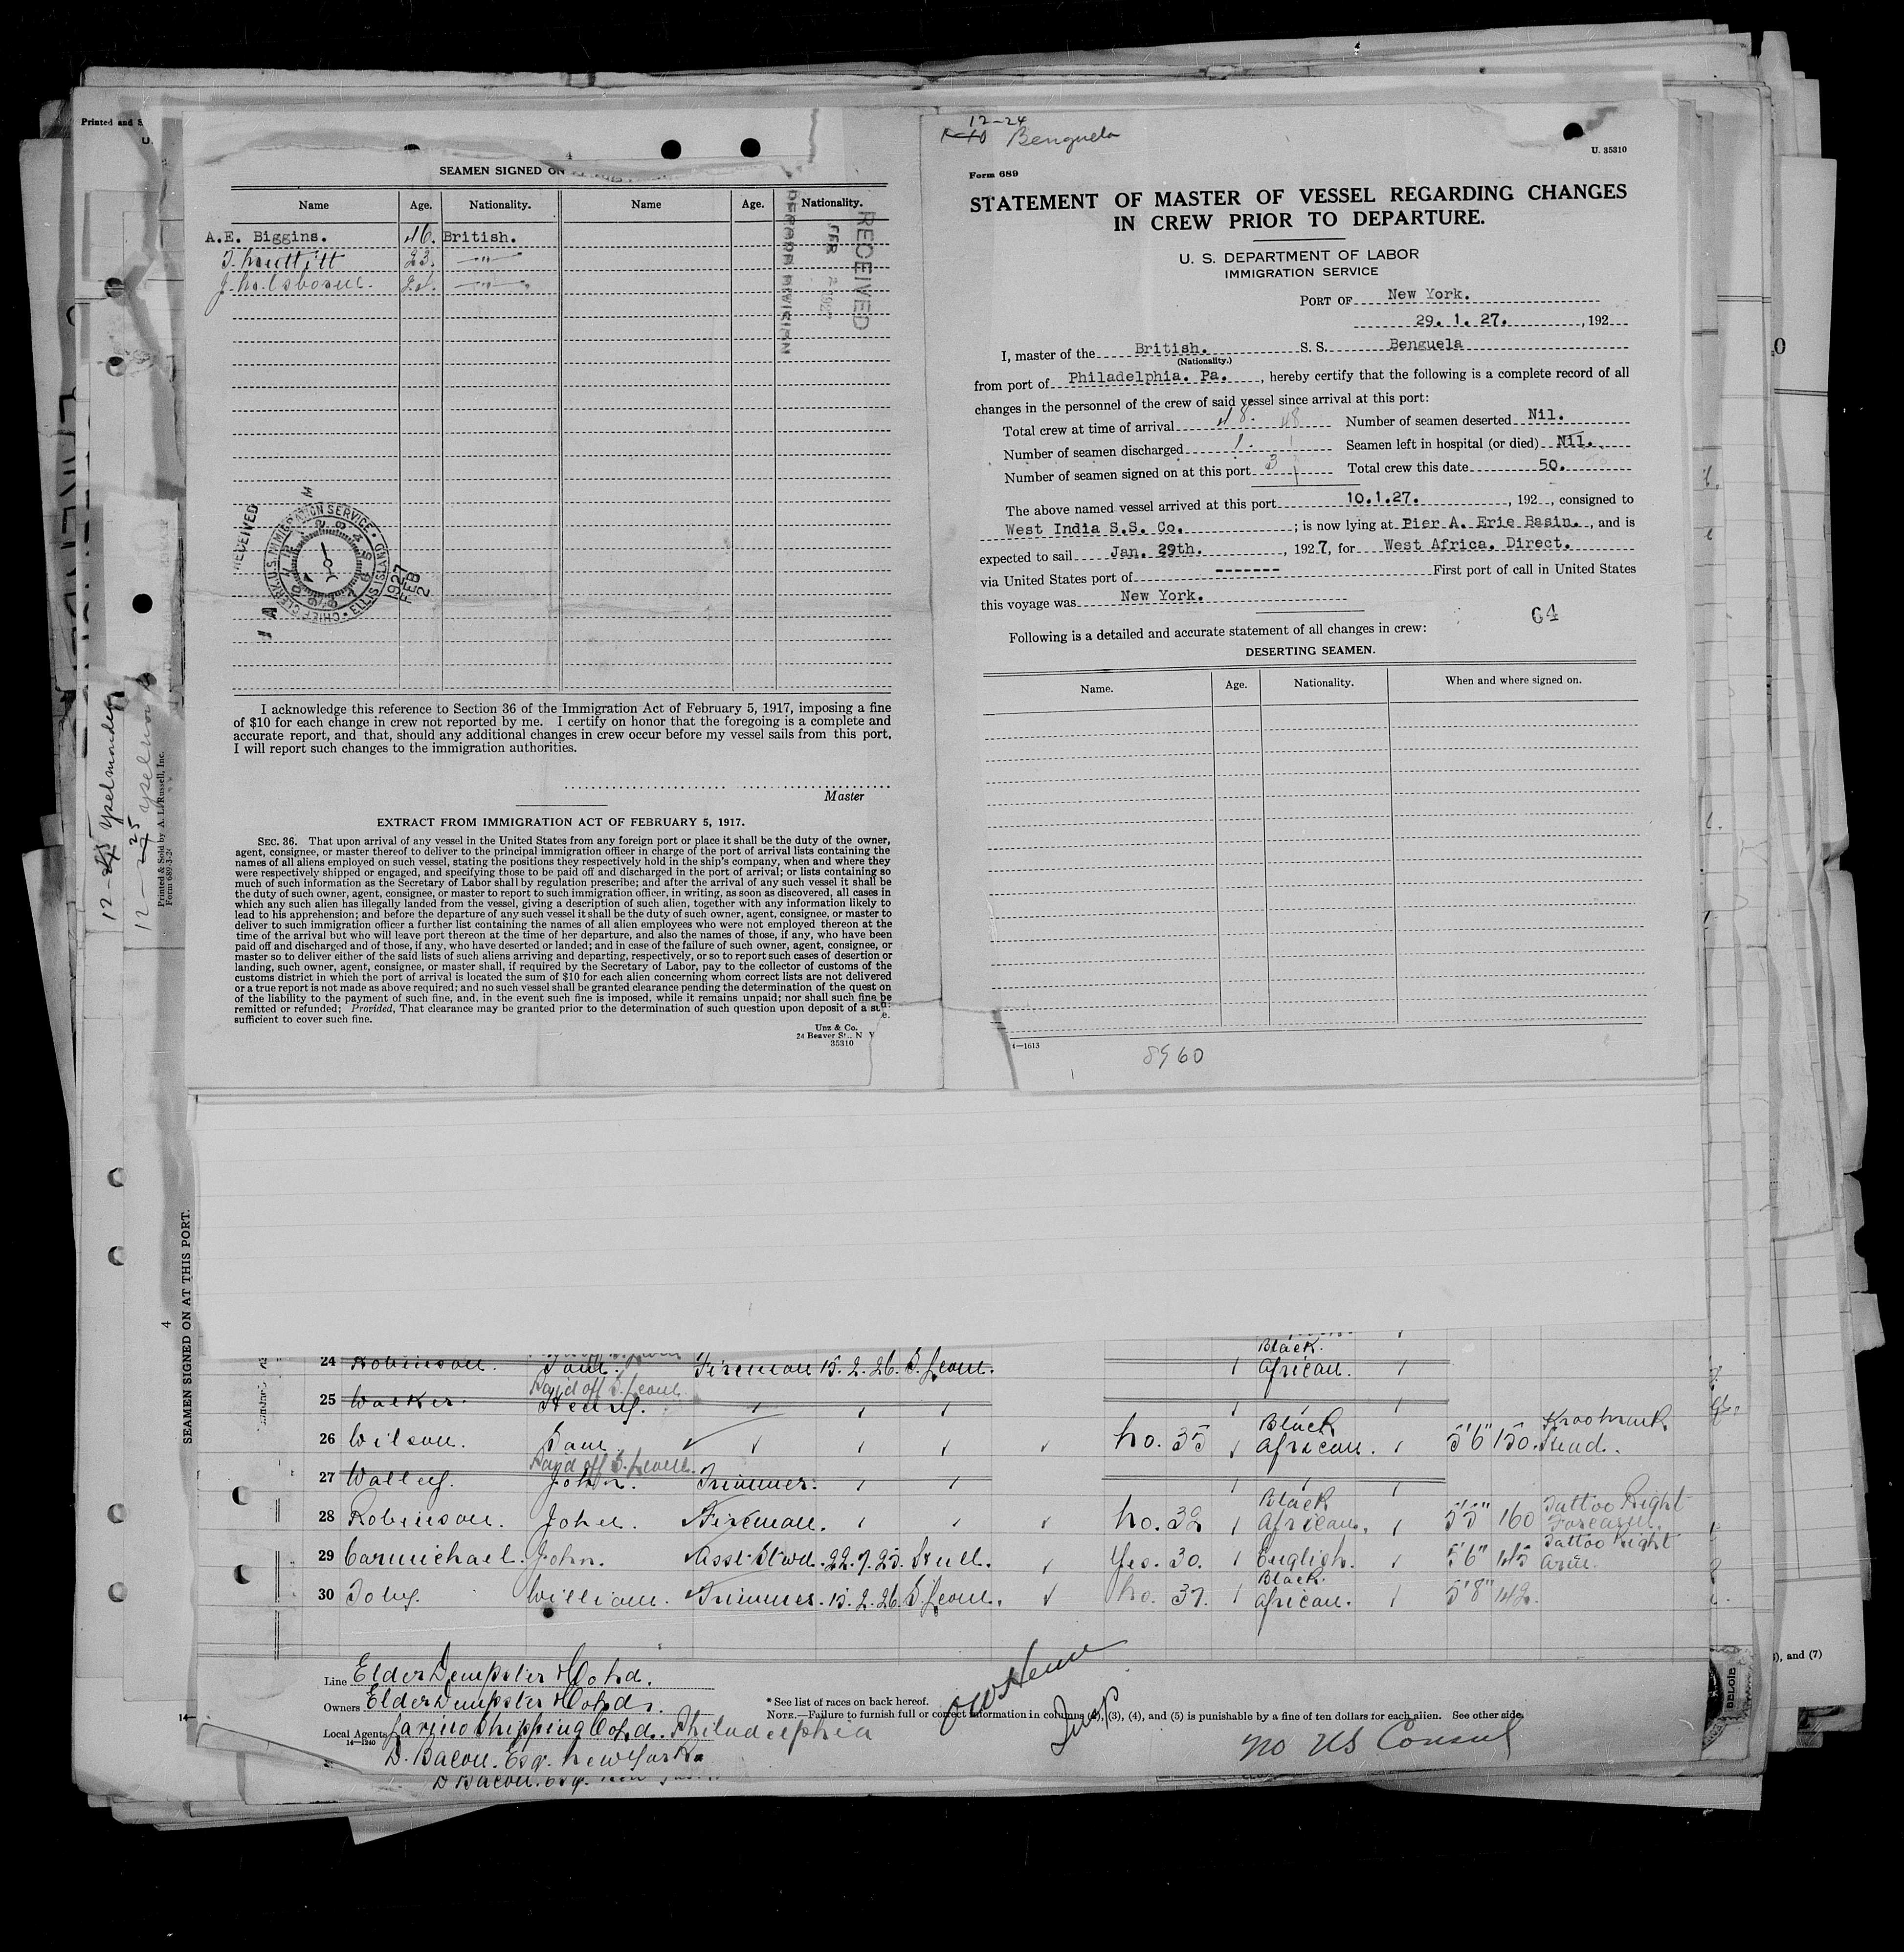 Printed and S
SEAMEN SIGNED ON
Name Age. Nationality. Name Age. Nationality.
A.E. Biggins. 46. British.
23. "
"
RECEIVED
FEB
RECEIVED
CHIEF CLERK, U.S. IMMIGRATION SERVICE • ELLIS ISLAND •
1927
FEB
2
I acknowledge this reference to Section 36 of the Immigration Act of February 5, 1917, imposing a fine
of $10 for each change in crew not reported by me. I certify on honor that the foregoing is a complete and
accurate report, and that, should any additional changes in crew occur before my vessel sails from this port,
I will report such changes to the immigration authorities.
Master
EXTRACT FROM IMMIGRATION ACT OF FEBRUARY 5, 1917.
SEC. 36. That upon arrival of any vessel in the United States from any foreign port or place it shall be the duty of the owner,
agent, consignee, or master thereof to deliver to the principal immigration officer in charge of the port of arrival lists containing the
names of all aliens employed on such vessel, stating the positions they respectively hold in the ship's company, when and where they
were respectively shipped or engaged, and specifying those to be paid off and discharged in the port of arrival; or lists containing so
much of such information as the Secretary of Labor shall by regulation prescribe; and after the arrival of any such vessel it shall be
the duty of such owner, agent, consignee, or master to report to such immigration officer, in writing, as soon as discovered, all cases in
which any such alien has illegally landed from the vessel, giving a description of such alien, together with any information likely to
lead to his apprehension; and before the departure of any such vessel it shall be the duty of such owner, agent, consignee, or master to
deliver to such immigration officer a further list containing the names of all alien employees who were not employed thereon at the
time of the arrival but who will leave port thereon at the time of her departure, and also the names of those, if any, who have been
paid off and discharged and of those, if any, who have deserted or landed; and in case of the failure of such owner, agent, consignee, or
master so to deliver either of the said lists of such aliens arriving and departing, respectively, or so to report such cases of desertion or
landing, such owner, agent, consignee, or master shall, if required by the Secretary of Labor, pay to the collector of customs of the
customs district in which the port of arrival is located the sum of $10 for each alien concerning whom correct lists are not delivered
or a true report is not made as above required; and no such vessel shall be granted clearance pending the determination of the quest on
of the liability to the payment of such fine, and, in the event such fine is imposed, while it remains unpaid; nor shall such fine be
remitted or refunded; Provided, That clearance may be granted prior to the determination of such question upon deposit of a su
sufficient to cover such fine.
Unz & Co.
24 Beaver St., N Y
35310
12-24
Benguela
U. 35310
Form 689
STATEMENT OF MASTER OF VESSEL REGARDING CHANGES
IN CREW PRIOR TO DEPARTURE.
U. S. DEPARTMENT OF LABOR
IMMIGRATION SERVICE
PORT OF New York.
29. 1. 27. , 192
I, master of the British. S. S. Benguela
(Nationality.)
from port of Philadelphia. Pa. , hereby certify that the following is a complete record of all
changes in the personnel of the crew of said vessel since arrival at this port:
Total crew at time of arrival 48. 48 Number of seamen deserted Nil.
Number of seamen discharged 1. Seamen left in hospital (or died) Nil.
Number of seamen signed on at this port 3 Total crew this date 50.
The above named vessel arrived at this port 10.1.27. , 192 , consigned to
West India S.S. Co. ; is now lying at Pier A. Erie Basin. , and is
expected to sail Jan. 29th. , 1927, for West Africa. Direct.
via United States port of ------- First port of call in United States
this voyage was New York.
64
Following is a detailed and accurate statement of all changes in crew:
DESERTING SEAMEN.
Name. Age. Nationality. When and where signed on.
4—1613
8960
12- Ysselmonde
12-25
Printed & Sold by A. L. Russell, Inc.
Form 689
SEAMEN SIGNED ON AT THIS PORT.
4
24 Robinson. Fireman 15.2.26. S. Leone. Black African.
Paid off S. Leone.
25 Walker. Henry.
26 Wilson. Sam. No. 35 Black African. 5'6" 150.
Paid off S. Leone.
27 John. Trimmer.
28 Robinson. John. Fireman. No. 32 Black African. 5'5" 160 Tattoo Right Forearm.
29 Carmichael. John. Asst. Stwd. 22.7.25. Hull. Yes. 30. English. 5'6" 145 Tattoo Right Arm.
30 Toby. William. Trimmer. 15.2.26. S. Leone. No. 37. Black African. 5'8" 142.
Line Elder Dempster & Co Ltd.
Owners Elder Dempster & Co Ltd.
Local Agents Shipping Co Ltd. Philadelphia
14—1240
D. Bacon. Esq. New York.
D Bacon. Esq.
* See list of races on back hereof.
NOTE.—Failure to furnish full or correct information in columns (2), (3), (4), and (5) is punishable by a fine of ten dollars for each alien. See other side.
Insp
No US Consul
), and (7)